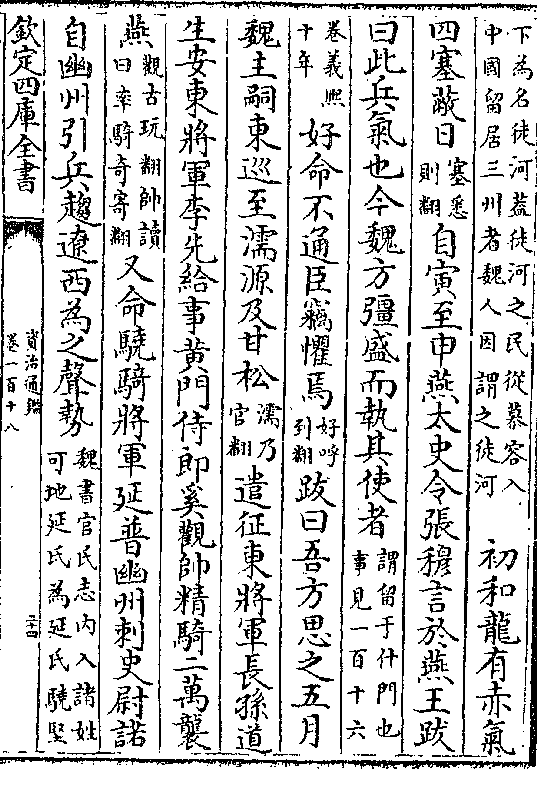 下為名徒河葢徒河之民從慕容入
中國留居三州者魏人因謂之徒河
初和龍有赤氣
四塞蔽日塞悉則翻自寅至申燕太史令張穆言於燕王跋
曰此兵氣也今魏方彊盛而執其使者謂留于什門也事見一百十六
卷義熙十年好命不通臣竊懼焉好呼到翻跋曰吾方思之五月
魏主嗣東巡至濡源及甘松濡乃官翻遣征東將軍長孫道
生安東將軍李先給事黄門侍郎奚觀帥精騎二萬襲
燕觀古玩翻帥讀曰率騎奇寄翻又命驍騎將軍延普幽州刺史尉諾
自幽州引兵趨遼西為之聲勢魏書官民志内入諸姓可地延氏為延氏驍堅
欽定四庫全書
資治通鑑
卷一百十八
二十四